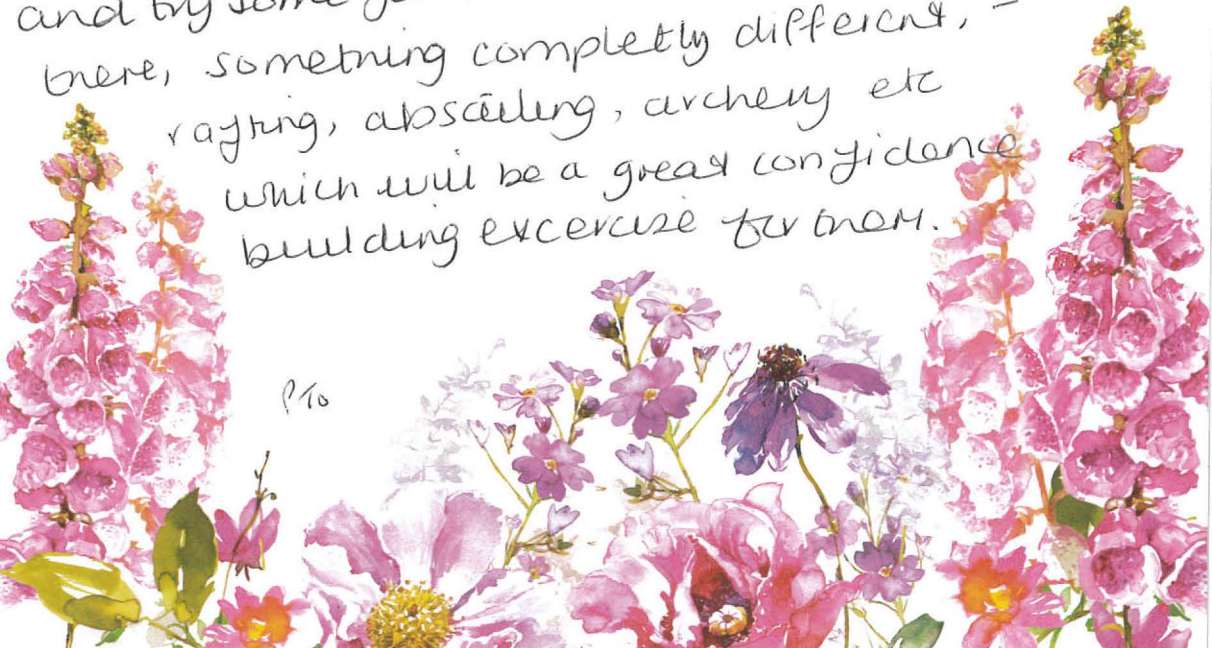 and try some
there, something completly different, -
rayting, absailing, archery etc
which will be a great confidence
building excercise for them.
PTO